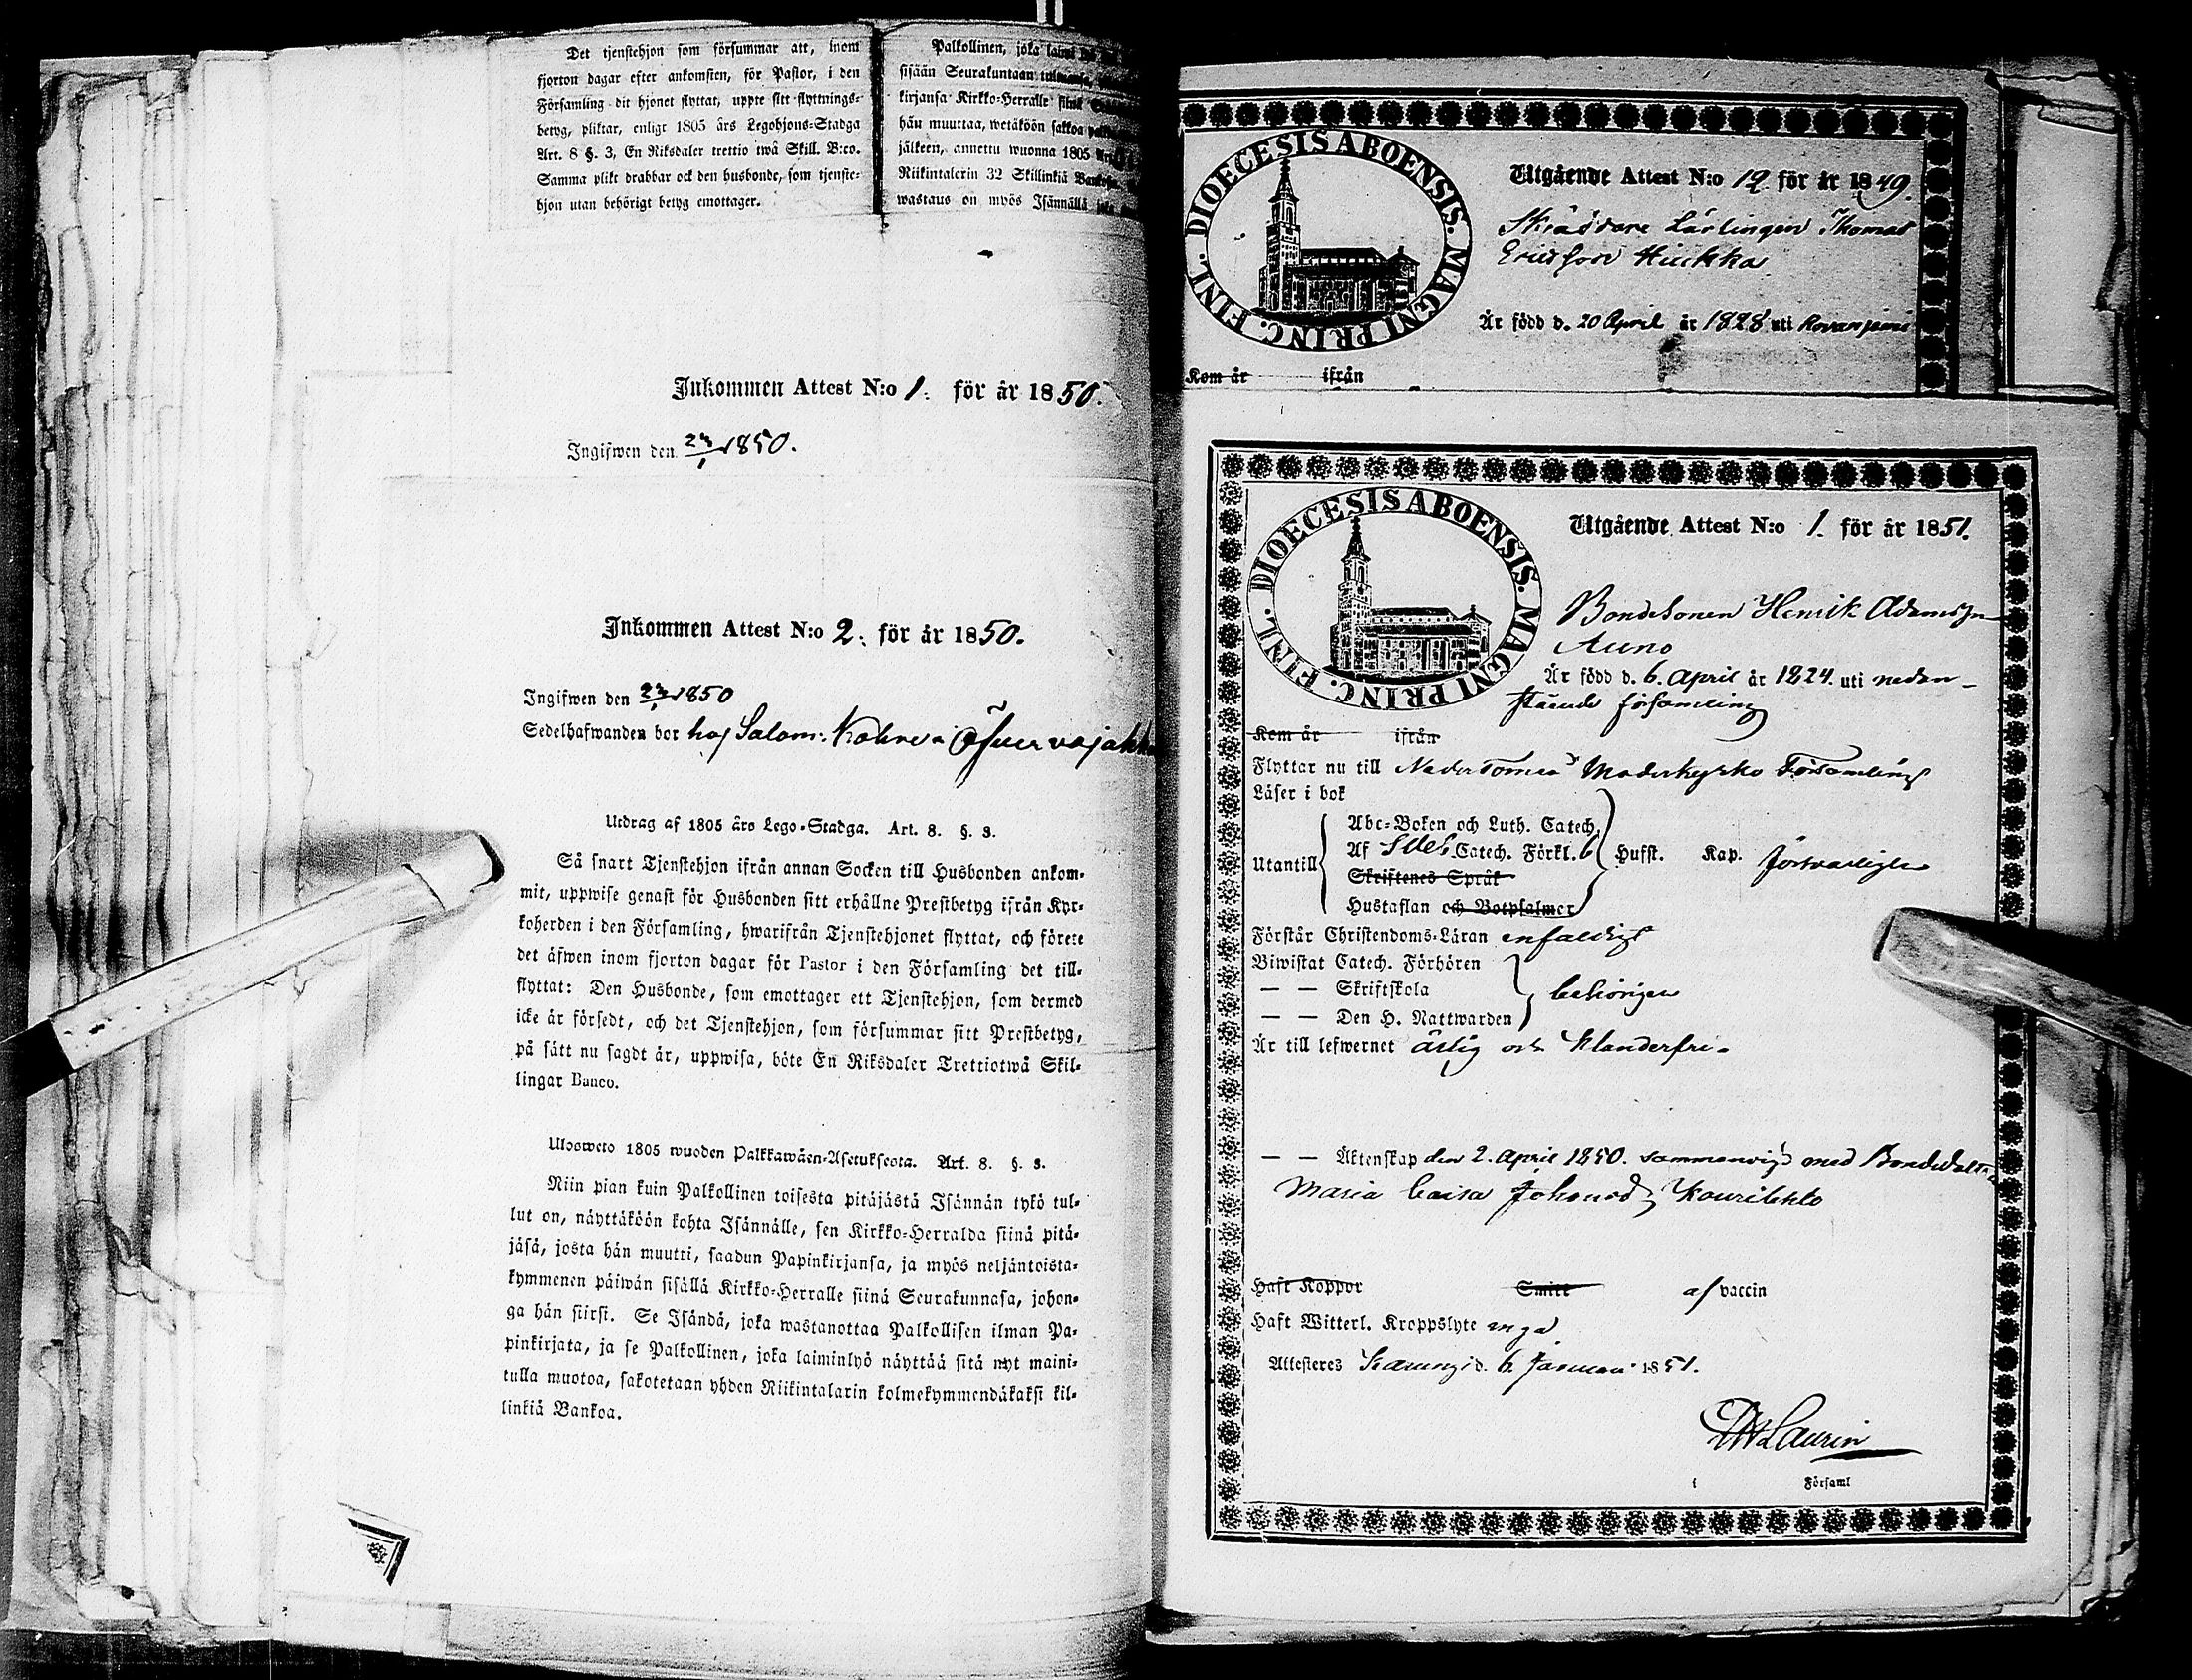 Det tjenstehjon som försummar att, inom
fjorton dagar efter ankomsten, för Pastor, i den
Församling dit hjonet flyttat, uppte sitt flyttnings-
betyg, pliktar, enligt 1805 års Legohjons-Stadga
Art. 8 §. 3, En Riksdaler trettio twå Skill. B:co.
Samma plikt drabbar ock den husbonde, som tjenste-
hjon utan behörigt betyg emottager.
Palkollinen, joka
sisään Seurakuntaan
kirjansa Kirkko-Herralle
hän muuttaa, wetäköön sakkoa
jälkeen, annettu wuonna 1805
Riikintalerin 32 Skillinkiä
wastaus on myös Isännällä
Inkommen Attest N:o 1. för år 1850.
Ingifwen den 1850.
Inkommen Attest N:o 2. för år 1850.
Ingifwen den 1850
Sedelhafwanden bor hos Salom:
Utdrag af 1805 års Lego-Stadga. Art. 8. §. 3.
Så snart Tjenstehjon ifrån annan Socken till Husbonden ankom-
mit, uppwise genast för Husbonden sitt erhållne Prestbetyg ifrån Kyr-
koherden i den Församling, hwarifrån Tjenstehjonet flyttat, och förete
det äfwen inom fjorton dagar för Pastor i den Församling det till-
flyttat: Den Husbonde, som emottager ett Tjenstehjon, som dermed
icke är försedt, och det Tjenstehjon, som försummar sitt Prestbetyg,
på sätt nu sagdt är, uppwisa, böte En Riksdaler Trettiotwå Skil-
lingar Banco.
Ulosweto 1805 wuoden Palkkawäen-Asetuksesta. Art. 8. §. 3.
Niin pian kuin Palkollinen toisesta pitäjästä Isännän tykö tul-
lut on, näyttäköön kohta Isännälle, sen Kirkko-Herralda siinä pitä-
jäsä, josta hän muutti, saadun Papinkirjansa, ja myös neljäntoista-
kymmenen päiwän sisällä Kirkko-Herralle siinä Seurakunnasa, johon-
ga hän siirsi. Se Isändä, joka wastanottaa Palkollisen ilman Pa-
pinkirjata, ja se Palkollinen, joka laiminlyö näyttää sitä nyt maini-
tulla muotoa, sakotetaan yhden Riikintalarin kolmekymmendäkaksi kil-
linkiä Bankoa.
DIOECESIS ABOENSIS. MAGNI PRINC. FINL.
Utgående Attest N:o 12 för år 1849.
Skräddare Lärlingen Thomas
Ericsson Hiukka
Är född d. 20 April år 1828 uti Rovaniemi
Kom år ifrån
DIOECESIS ABOENSIS. MAGNI PRINC. FINL.
Utgående Attest N:o 1. för år 1851.
Bondesonen Henrik Adamsson
Auno
Är född d. 6. April år 1824. uti nedan-
stående församling
Kom år ifrån
Flyttar nu till Neder Torneå Moderkyrko Församling
Läser i bok
Abc-Boken och Luth. Catech.
Utantill Af Catech. Förkl. 6 Hufst. Kap. försvarligen
Skriftenes Språk
Hustaflan och Botpsalmer
Förstår Christendoms-Läran enfaldigt
Biwistat Catech. Förhören
— — Skriftskola behörigen
— — Den H. Nattwarden
Är till lefwernet ärlig och klanderfri.
— — Äktenskap den 2. April 1850. sammanvigd med Bondedottern
Maria Caisa Johansd:
Haft Koppor Smitt af vaccin
Haft Witterl. Kroppslyte inga
Attesteres Karungi d. 6. Januari 1851.
Laurin
i Församl